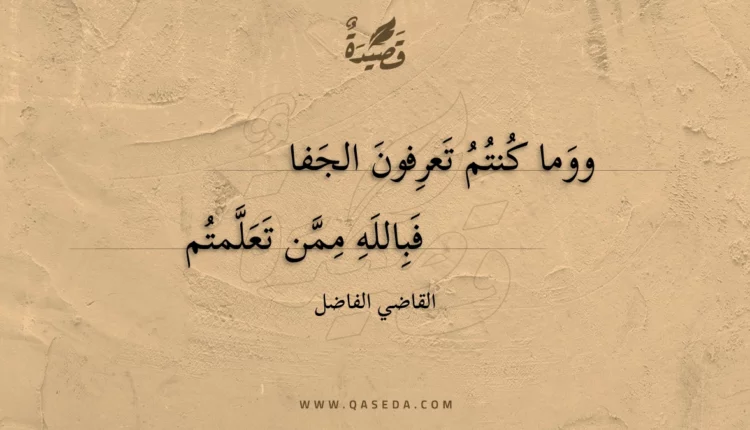 قَصِيدَةٌ
ووَما كُنتُمُ تَعرِفونَ الجَفا
فَبِاللَهِ مِمَّن تَعَلَّمتُم
القاضي الفاضل
WWW.QASEDA.COM